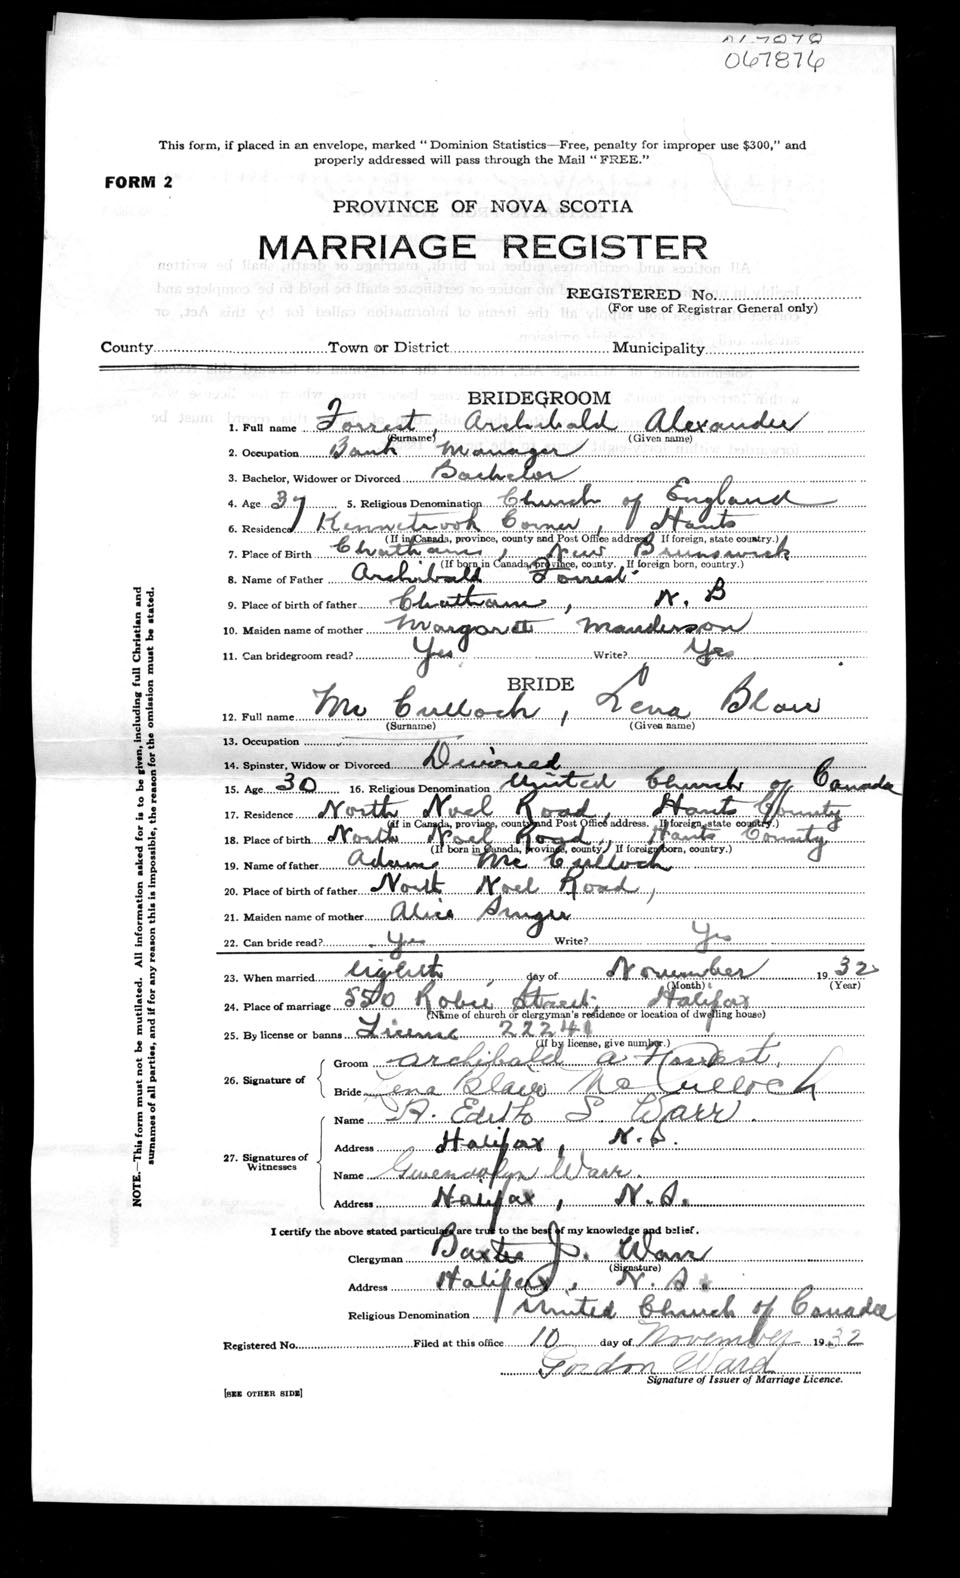 067876
This form, if placed in an envelope, marked "Dominion Statistics—Free, penalty for improper use $300," and
properly addressed will pass through the Mail "FREE."
FORM 2
PROVINCE OF NOVA SCOTIA
MARRIAGE REGISTER
REGISTERED No.
(For use of Registrar General only)
County Town or District Municipality
BRIDEGROOM
1. Full name Forrest, Archibald Alexander
(Surname) (Given name)
2. Occupation Bank Manager
3. Bachelor, Widower or Divorced Bachelor
4. Age 37 5. Religious Denomination Church of England
6. Residence Kennetcook Corner, Hants
(If in Canada, province, county and Post Office address. If foreign, state country.)
7. Place of Birth Chatham, New Brunswick
(If born in Canada, province, county. If foreign born, country.)
8. Name of Father Archibald Forrest
9. Place of birth of father Chatham, N. B
10. Maiden name of mother Margarett Manderson
11. Can bridegroom read? Yes Write? Yes
BRIDE
12. Full name Mc Culloch, Lena Blair
(Surname) (Given name)
13. Occupation
14. Spinster, Widow or Divorced Divorced
15. Age 30 16. Religious Denomination United Church of Canada
17. Residence North Noel Road, Hants County
(If in Canada, province, county and Post Office address. If foreign, state country.)
18. Place of birth North Noel Road, Hants County
(If born in Canada, province, county. If foreign born, country.)
19. Name of father Adam Mc Culloch
20. Place of birth of father North Noel Road,
21. Maiden name of mother Alice
22. Can bride read? Yes Write? Yes
23. When married Eighth day of November 1932
(Month) (Year)
24. Place of marriage 550 Robie Street Halifax
(Name of church or clergyman's residence or location of dwelling house)
25. By license or banns License 22241
(If by license, give number.)
26. Signature of
Groom Archibald A Forrest
Bride Lena Blair McCulloch
27. Signatures of Witnesses
Name Edith S. Warr
Address Halifax, N.S.
Name Gwendolyn Warr
Address Halifax, N.S.
I certify the above stated particulars are true to the best of my knowledge and belief.
Clergyman Baxter J. Warr
(Signature)
Address Halifax, N. S.
Religious Denomination United Church of Canada
Registered No. Filed at this office 10 day of November 1932
Gordon Ward
Signature of Issuer of Marriage Licence.
[SEE OTHER SIDE]
NOTE.—This form must not be mutilated. All information asked for is to be given, including full Christian and
surnames of all parties, and if for any reason this is impossible, the reason for the omission must be stated.